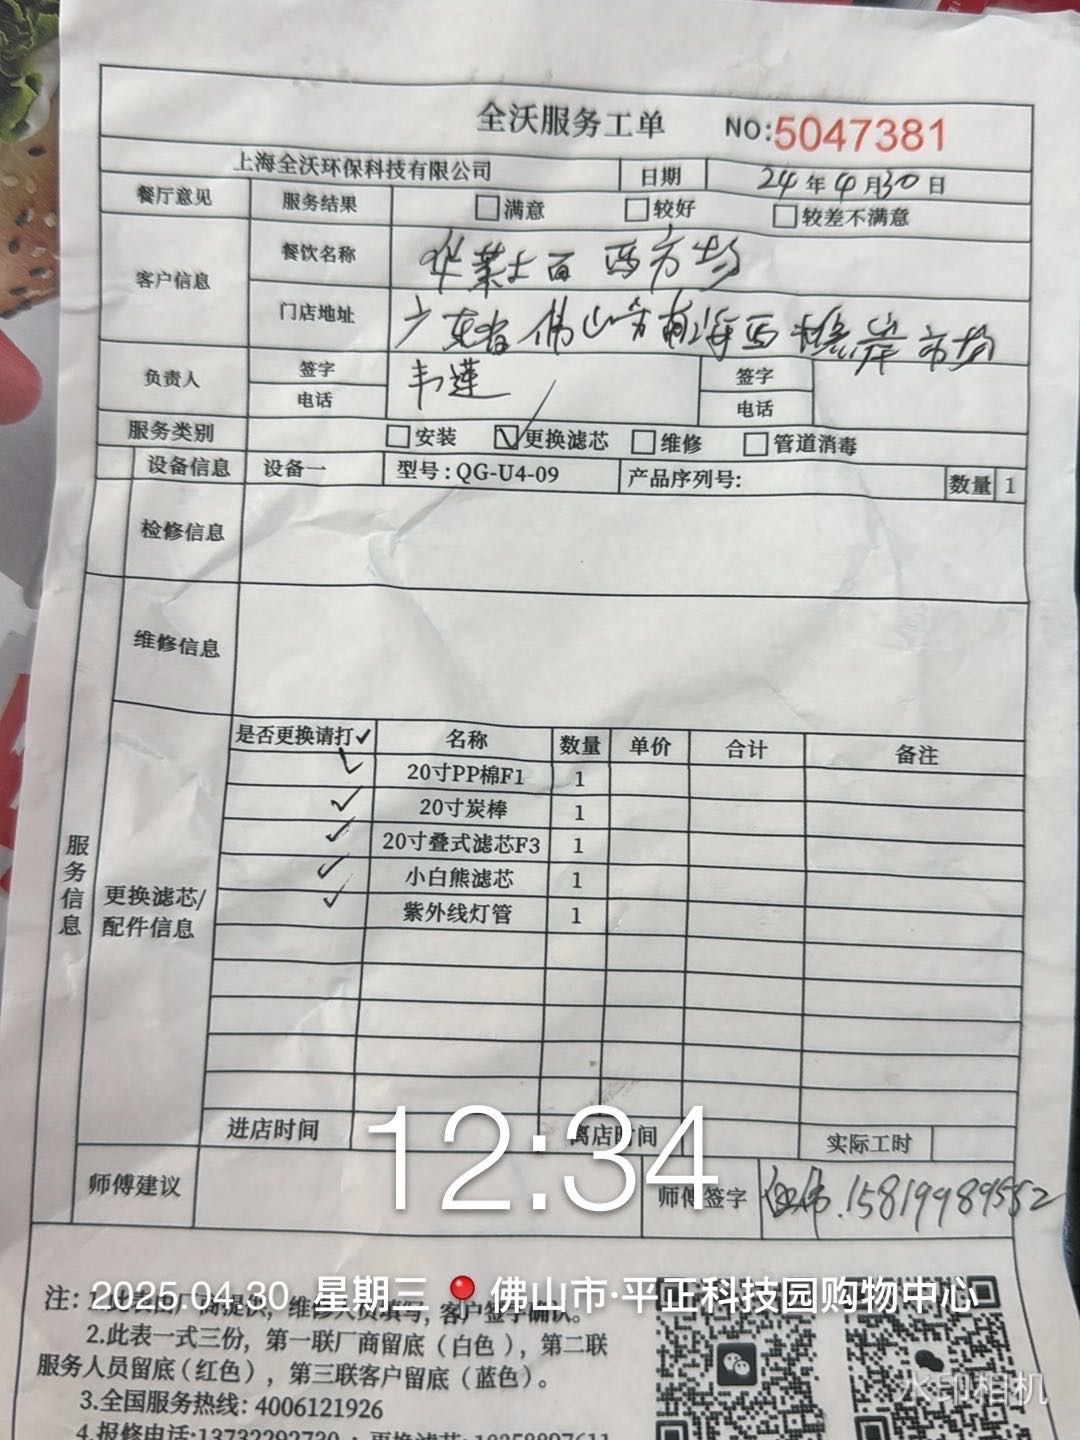 全沃服务工单 NO:5047381
上海全沃环保科技有限公司 日期 24年4月30日
餐厅意见 服务结果 满意 较好 较差不满意
客户信息 餐饮名称 华莱士
门店地址 广东省佛山市南海 市场
负责人 签字 韦莲 签字
电话 电话
服务类别 安装 更换滤芯 维修 管道消毒
设备信息 设备一 型号:QG-U4-09 产品序列号: 数量 1
检修信息
维修信息
服务信息
更换滤芯/
配件信息
是否更换请打✓ 名称 数量 单价 合计 备注
✓ 20寸PP棉F1 1
✓ 20寸炭棒 1
✓ 20寸叠式滤芯F3 1
✓ 小白熊滤芯 1
✓ 紫外线灯管 1
进店时间 离店时间 实际工时
12:34
师傅建议 师傅签字 15819989552
2025.04.30 星期三 佛山市·平正科技园购物中心
注: 维修人员填写,客户签字确认。
2.此表一式三份,第一联厂商留底(白色),第二联
服务人员留底(红色),第三联客户留底(蓝色)。
3.全国服务热线:4006121926
4.报修电话:13732292730 更换滤芯:
水印相机